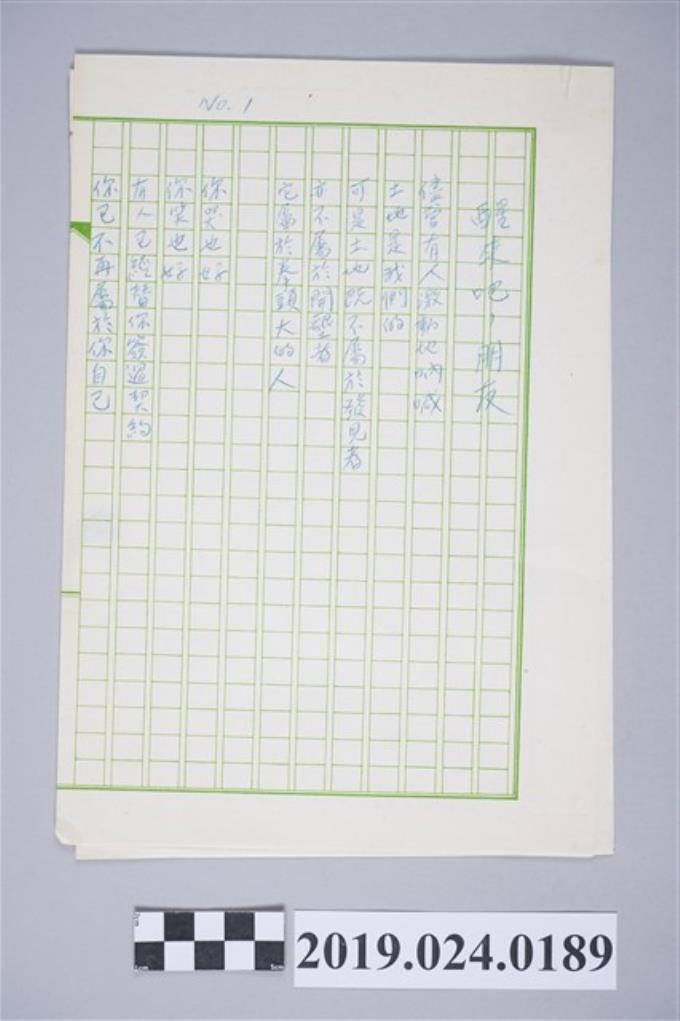 No. 1
醒來吧，朋友
儘管有人激動地吶喊
土地是我們的
可是土地既不屬於發見者
亦不屬於開墾者
它屬於拳頭大的人
你哭也好
你笑也好
有人已經替你簽過契約
你已不再屬於你自己
2019.024.0189